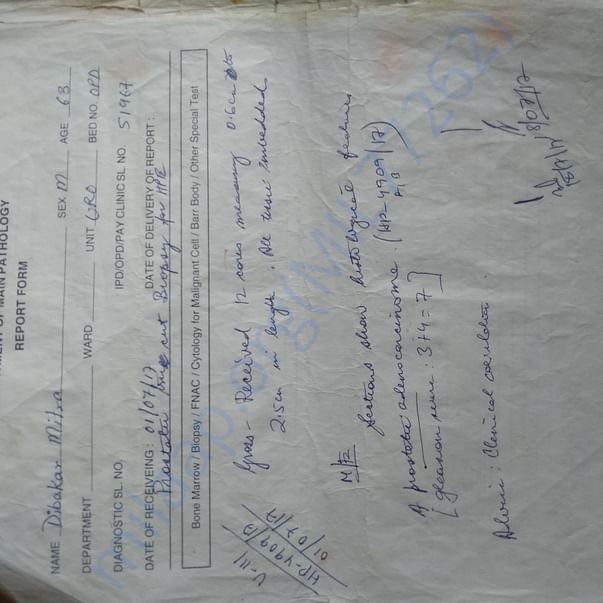 DEPARTMENT OF MAIN PATHOLOGY
REPORT FORM
NAME Dibakar Mitra SEX M AGE 63
DEPARTMENT WARD UNIT URO BED NO. OPD
DIAGNOSTIC SL NO. IPD/OPD/PAY CLINIC SL NO. 51967
DATE OF RECEIVEING: 01/07/17 DATE OF DELIVERY OF REPORT:
Prostatic Tru cut Biopsy for HPE
Bone Marrow / Biopsy / FNAC / Cytology for Malignant Cell / Barr Body / Other Special Test
V-III
HP-4909/17
01/07/17
Gross- Received 12 cores measuring 0.6cm to
2.5cm in length. All were embedded.
M/E Sections show histological features
of prostatic adenocarcinoma (HP-4909/17)
[gleason score: 3+4=7]
Advice: Clinical correlation.
18/07/17